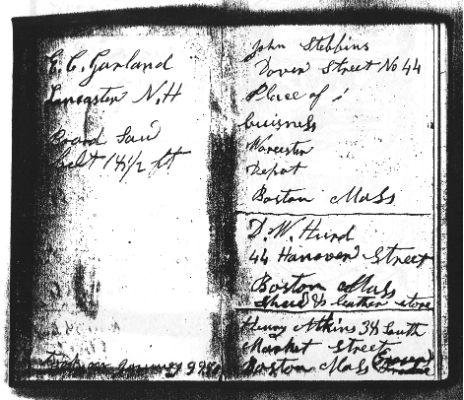 E. C. Garland
Lancaster N.H
Board Saw
belt 14 1/2 ft
John Stebbins
Dover Street No 44
Place of
buisness
Worcester
Depot
Boston Mass
D. W. Hurd
44 Hanover Street
Boston Mass
Shoe & leather store
Henry Atkins 38 South
Market Street
Boston Mass